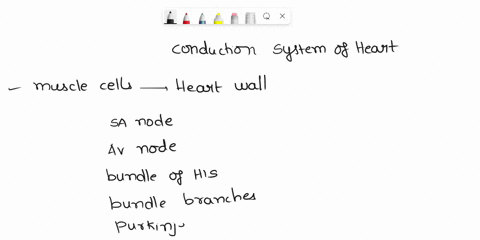 Conduction System of Heart
- muscle cells → Heart wall
SA node
AV node
bundle of HIS
bundle branches
Purkinj